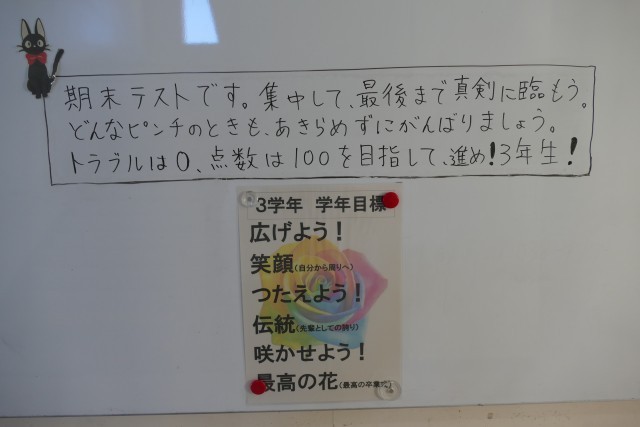 期末テストです。集中して、最後まで真剣に臨もう。
どんなピンチのときも、あきらめずにがんばりましょう。
トラブルは0、点数は100を目指して、進め!3年生!
3学年 学年目標
広げよう!
笑顔(自分から周りへ)
つたえよう!
伝統(先輩としての誇り)
咲かせよう!
最高の花(最高の卒業式)